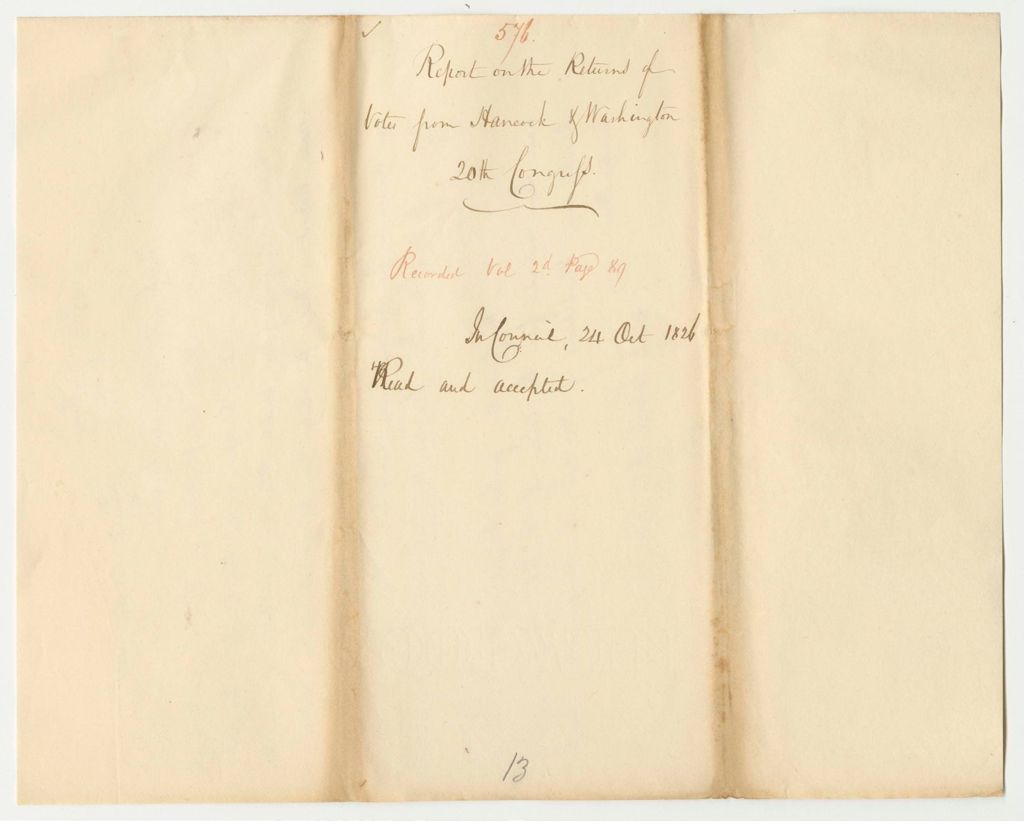 576.
Report on the Returns of
Votes from Hancock & Washington
20th Congress.
Recorded Vol 2d Page 89
In Council, 24 Oct 1826
Read and accepted.
13